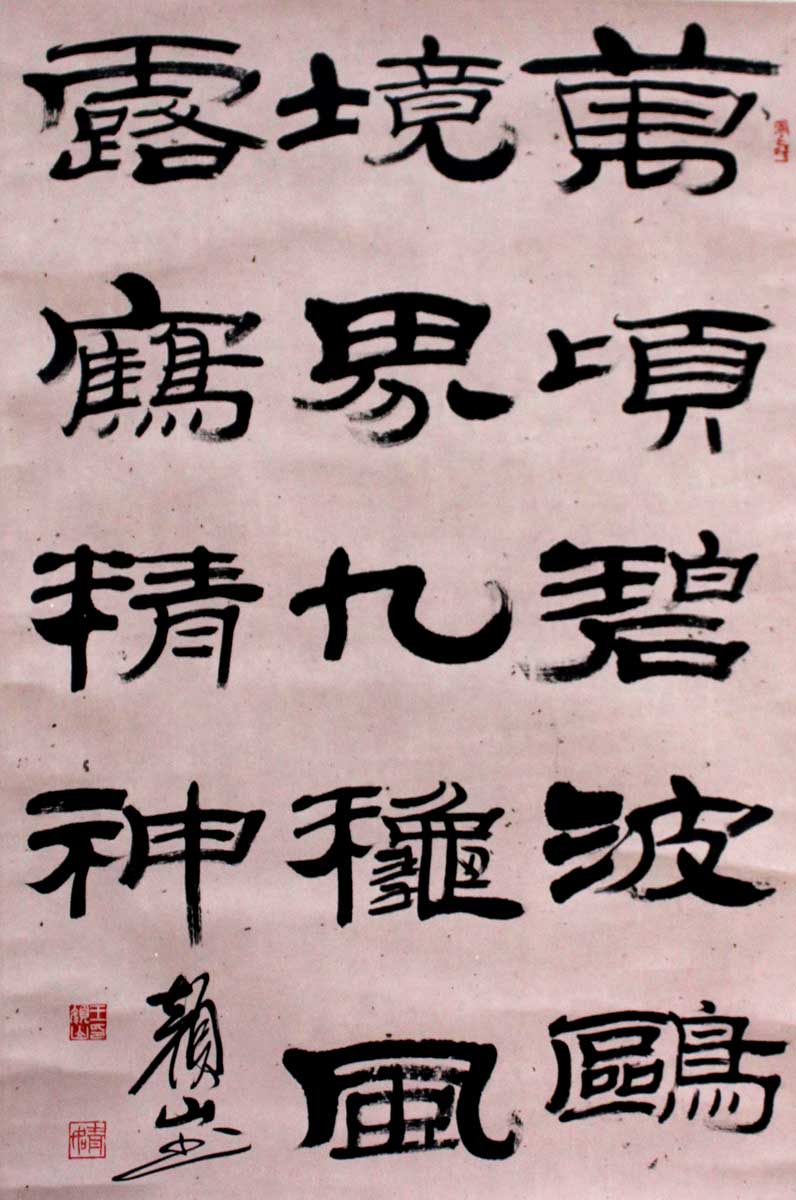 萬頃碧波鷗
境界九龝風
露鶴精神